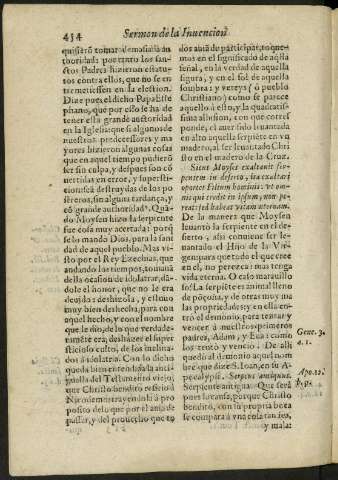 454 Sermon de la Invencion
quisierō tomar demasiada au
thoridad: por tanto los san-
ctos Padres hizieron estatu-
tos contra ellos, que no se en
tremetiessen en la election.
Dize pues, el dicho Papa Este
phano, que por esso se ha de
tener esta grande auctoridad
en la Iglesia: que si algunos de
nuestros predecessores y ma
yores hizieron algunas cosas
que en aquel tiempo pudierō
ser sin culpa, y despues son cō
uertidas en error, y supersti-
cion: seā destruydas de los po
streros, sin alguna tardança, y
cō grande authoridad. Quā-
do Moysen hizo la serpiente
fue cosa muy acertada: porq̄
se lo mando Dios, para la sani
dad de aquel pueblo. Mas vi-
sto por el Rey Ezechias, que
andando los tiempos, tomauā
de la ocasiō de idolatrar, dā-
dole el honor, que no le era
deuido: deshizola, y estuuo
muy bien deshecha, para con
aquel hecho, y con el nombre
que le dio, de lo que verdade-
ramēte era, deshazer el super
sticioso culto, de los inclina-
dos a idolatria. Con lo dicho
queda bien entendida la anti-
gualla del Testamento viejo,
que Christo bendito refirio a
Nicodemo: trayendola à pro
posito de lo que por el auia de
passar, y del prouecho que to
dos auiā de participar, toque-
mos en el significado de aq̄sta
señal, en la verdad de aquesta
figura, y en el sol de aquella
sombra: y vereys (ò pueblo
Christiano) como se parece
aquello à esto, y la quadratis-
sima alusion, con que corref-
ponde, el auer sido leuantado
en alto aquella serpiēte en vn
madero, al ser leuantado Chri
sto en el madero de la Cruz.
Sicut Moyses exaltauit ser-
pentem in deserto, ita exaltari
oportet Filium hominis: vt om-
nis qui credit in ipsum, non pe-
reat, sed habeat vitam æternam.
De la manera que Moysen
leuanto la serpiente en el de-
sierto, assi conuiene ser le-
uantado el Hijo de la Vir-
gen: para que todo el que cree
en el, no perezca: mas tenga
vida eterna. O caso marauillo
so! La serpiēte es animal lleno
de pōçoña, y de otras muy ma
las propriedades: y en ella en-
trò el demonio, para tentar y
vencer à nuestros primeros
padres, Adam, y Eua: como
los tentò y vencio. De alli
quedò al demonio aquel nom
bre que dize S. Ioan, en su A-
pocalypsi. Serpens antiquus.
Serpiente antigua. Que serà
pues la causa, porque Christo
bendito, con su propria boca
se compara à vna cosa tan fea,
y mala:
Gene. 3.
a. 1.
Apo. 12.